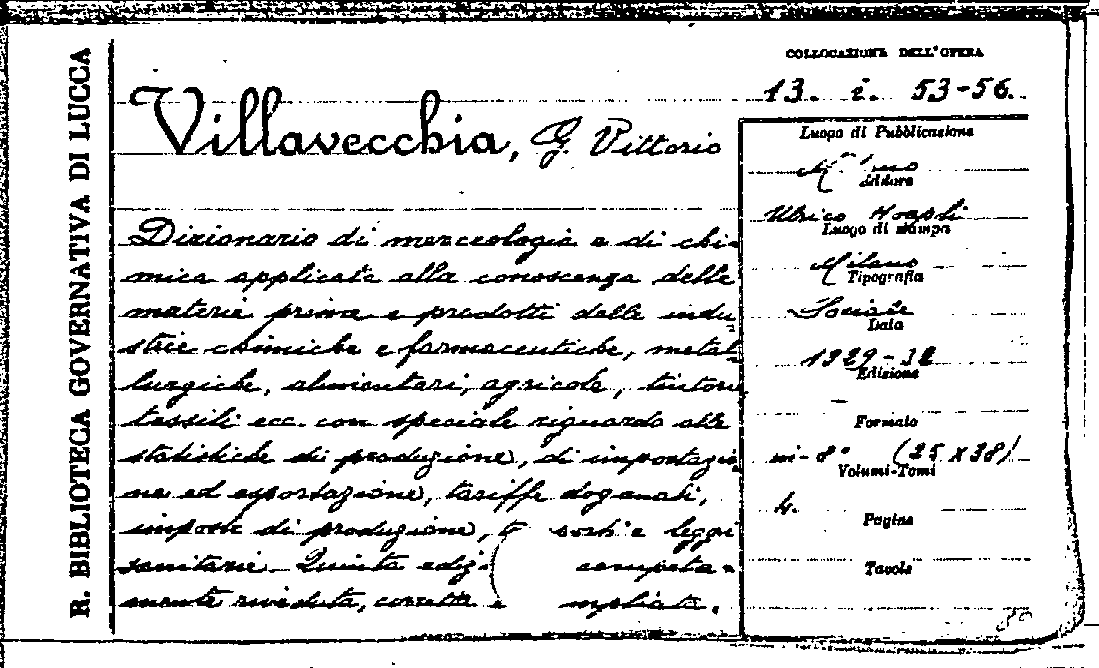 R. BIBLIOTECA GOVERNATIVA DI LUCCA
Villavecchia, G. Vittorio
Dizionario di merceologia e di chi-
mica applicata alla conoscenza delle
materie prime e prodotti delle indu-
strie chimiche e farmaceutiche, metal-
lurgiche, alimentari, agricole, tintorie
tessili ecc. con speciale riguardo alle
statistiche di produzione, di importazio-
ne ed esportazione, tariffe doganali,
imposte di produzione, e leggi
sanitarie. Quinta
mente riveduta, corretta
COLLOCAZIONE DELL'OPERA
13. i. 53-56.
Luogo di Pubblicazione
Editore
Ulrico Hoepli
Luogo di stampa
Milano
Tipografia
Data
1929-32
Edizione
Formato
in-8° (25 X 38)
Volumi-Tomi
4.
Pagine
Tavole